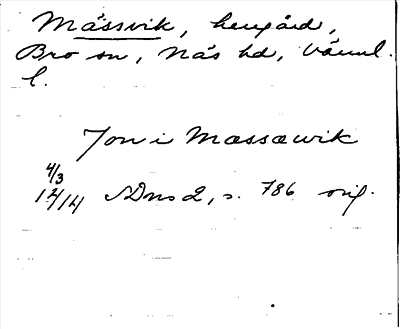 Mässvik, herrgård,
Bro sn, Näs hd, Värml.
l.
Jon i Massawik
4/3
1414 SDns 2, s. 786 orig.